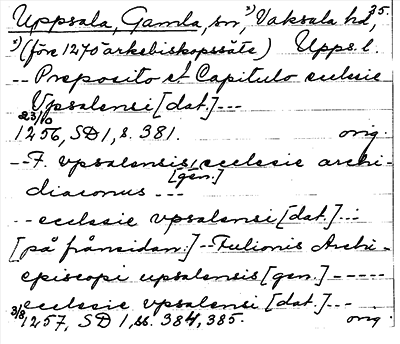 Uppsala, Gamla, sn, ¹⁾ Vaksala hd, 35.
¹⁾ (före 1270 ärkebiskopssäte) Upps. l.
-- Preposito et Capitulo ecclesie
Vpsalensi [dat.] ---
23/10
1256, SD 1, s. 381. orig.
-- F. vpsalensis ecclesie archi-
[gen.]
diaconus ---
-- ecclesie vpsalensi [dat.] ---
[på frånsidan:] -- Fulionis Archi-
episcopi upsalensis [gen.] -----
-- ecclesie vpsalensi [dat.] ---
3/8 1257, SD 1, ss. 384, 385. orig.